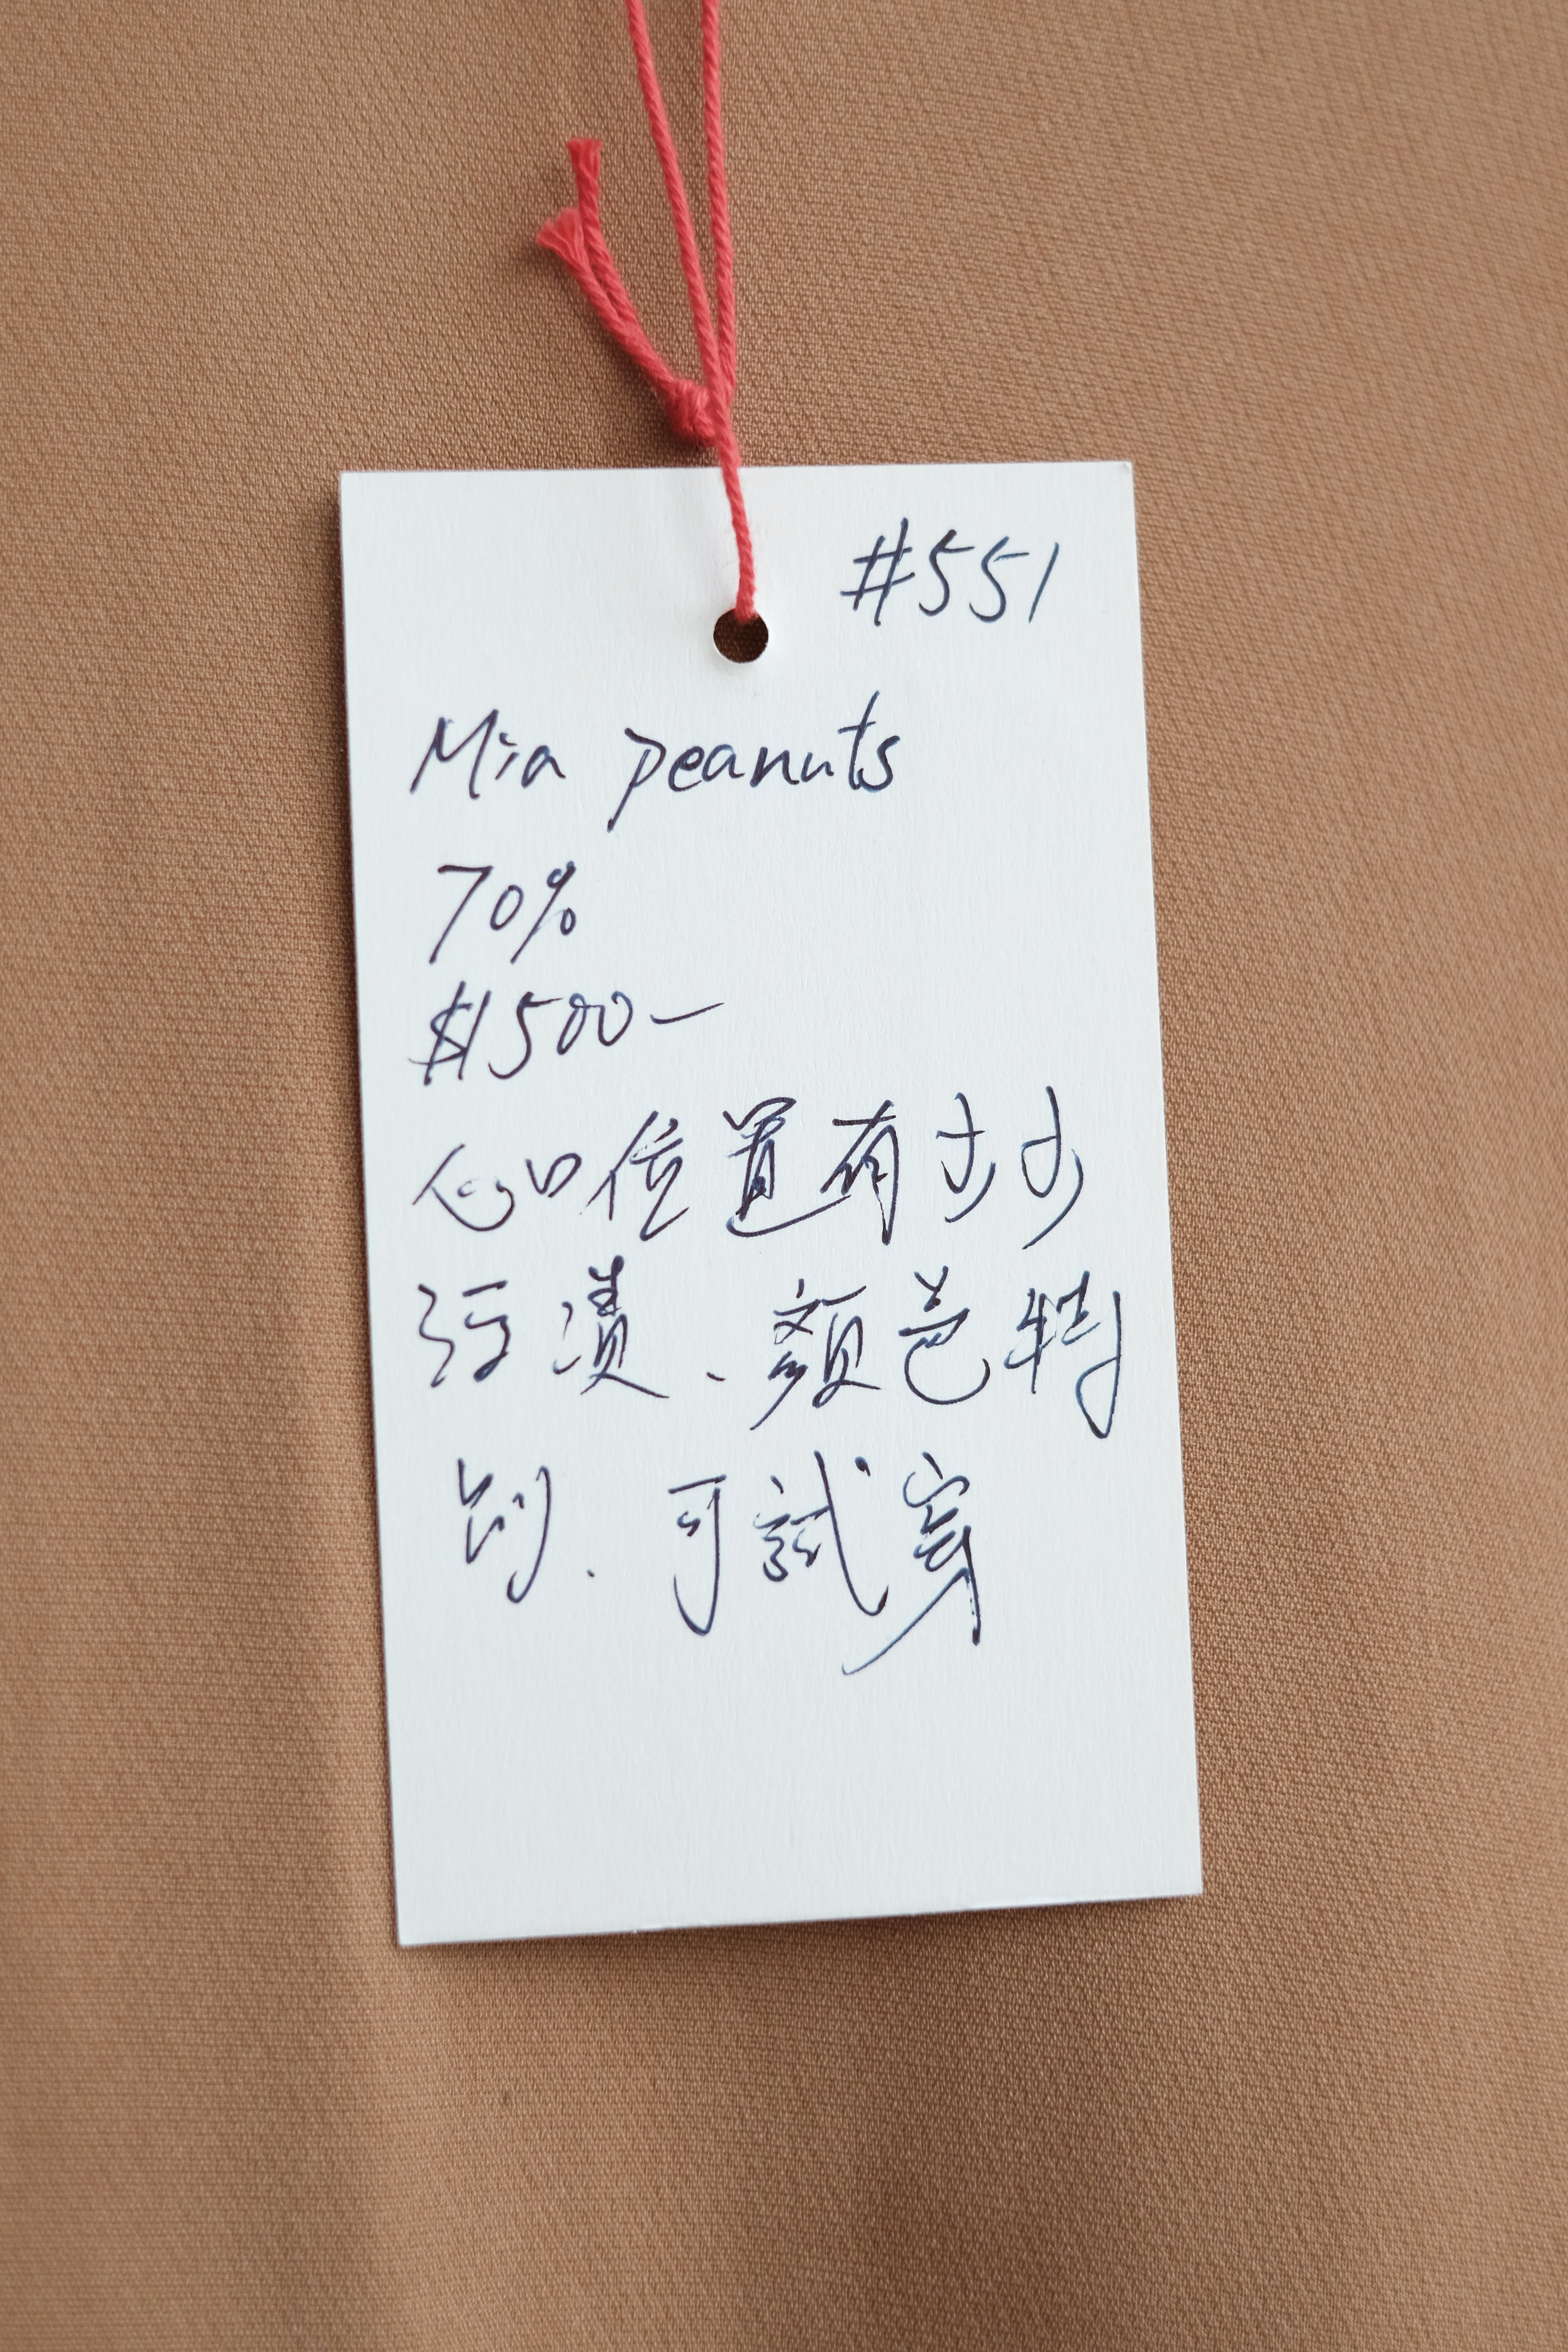 #551
Mia peanuts
70%
$500-
心口位置有少少
污漬、顏色特
別、可試穿